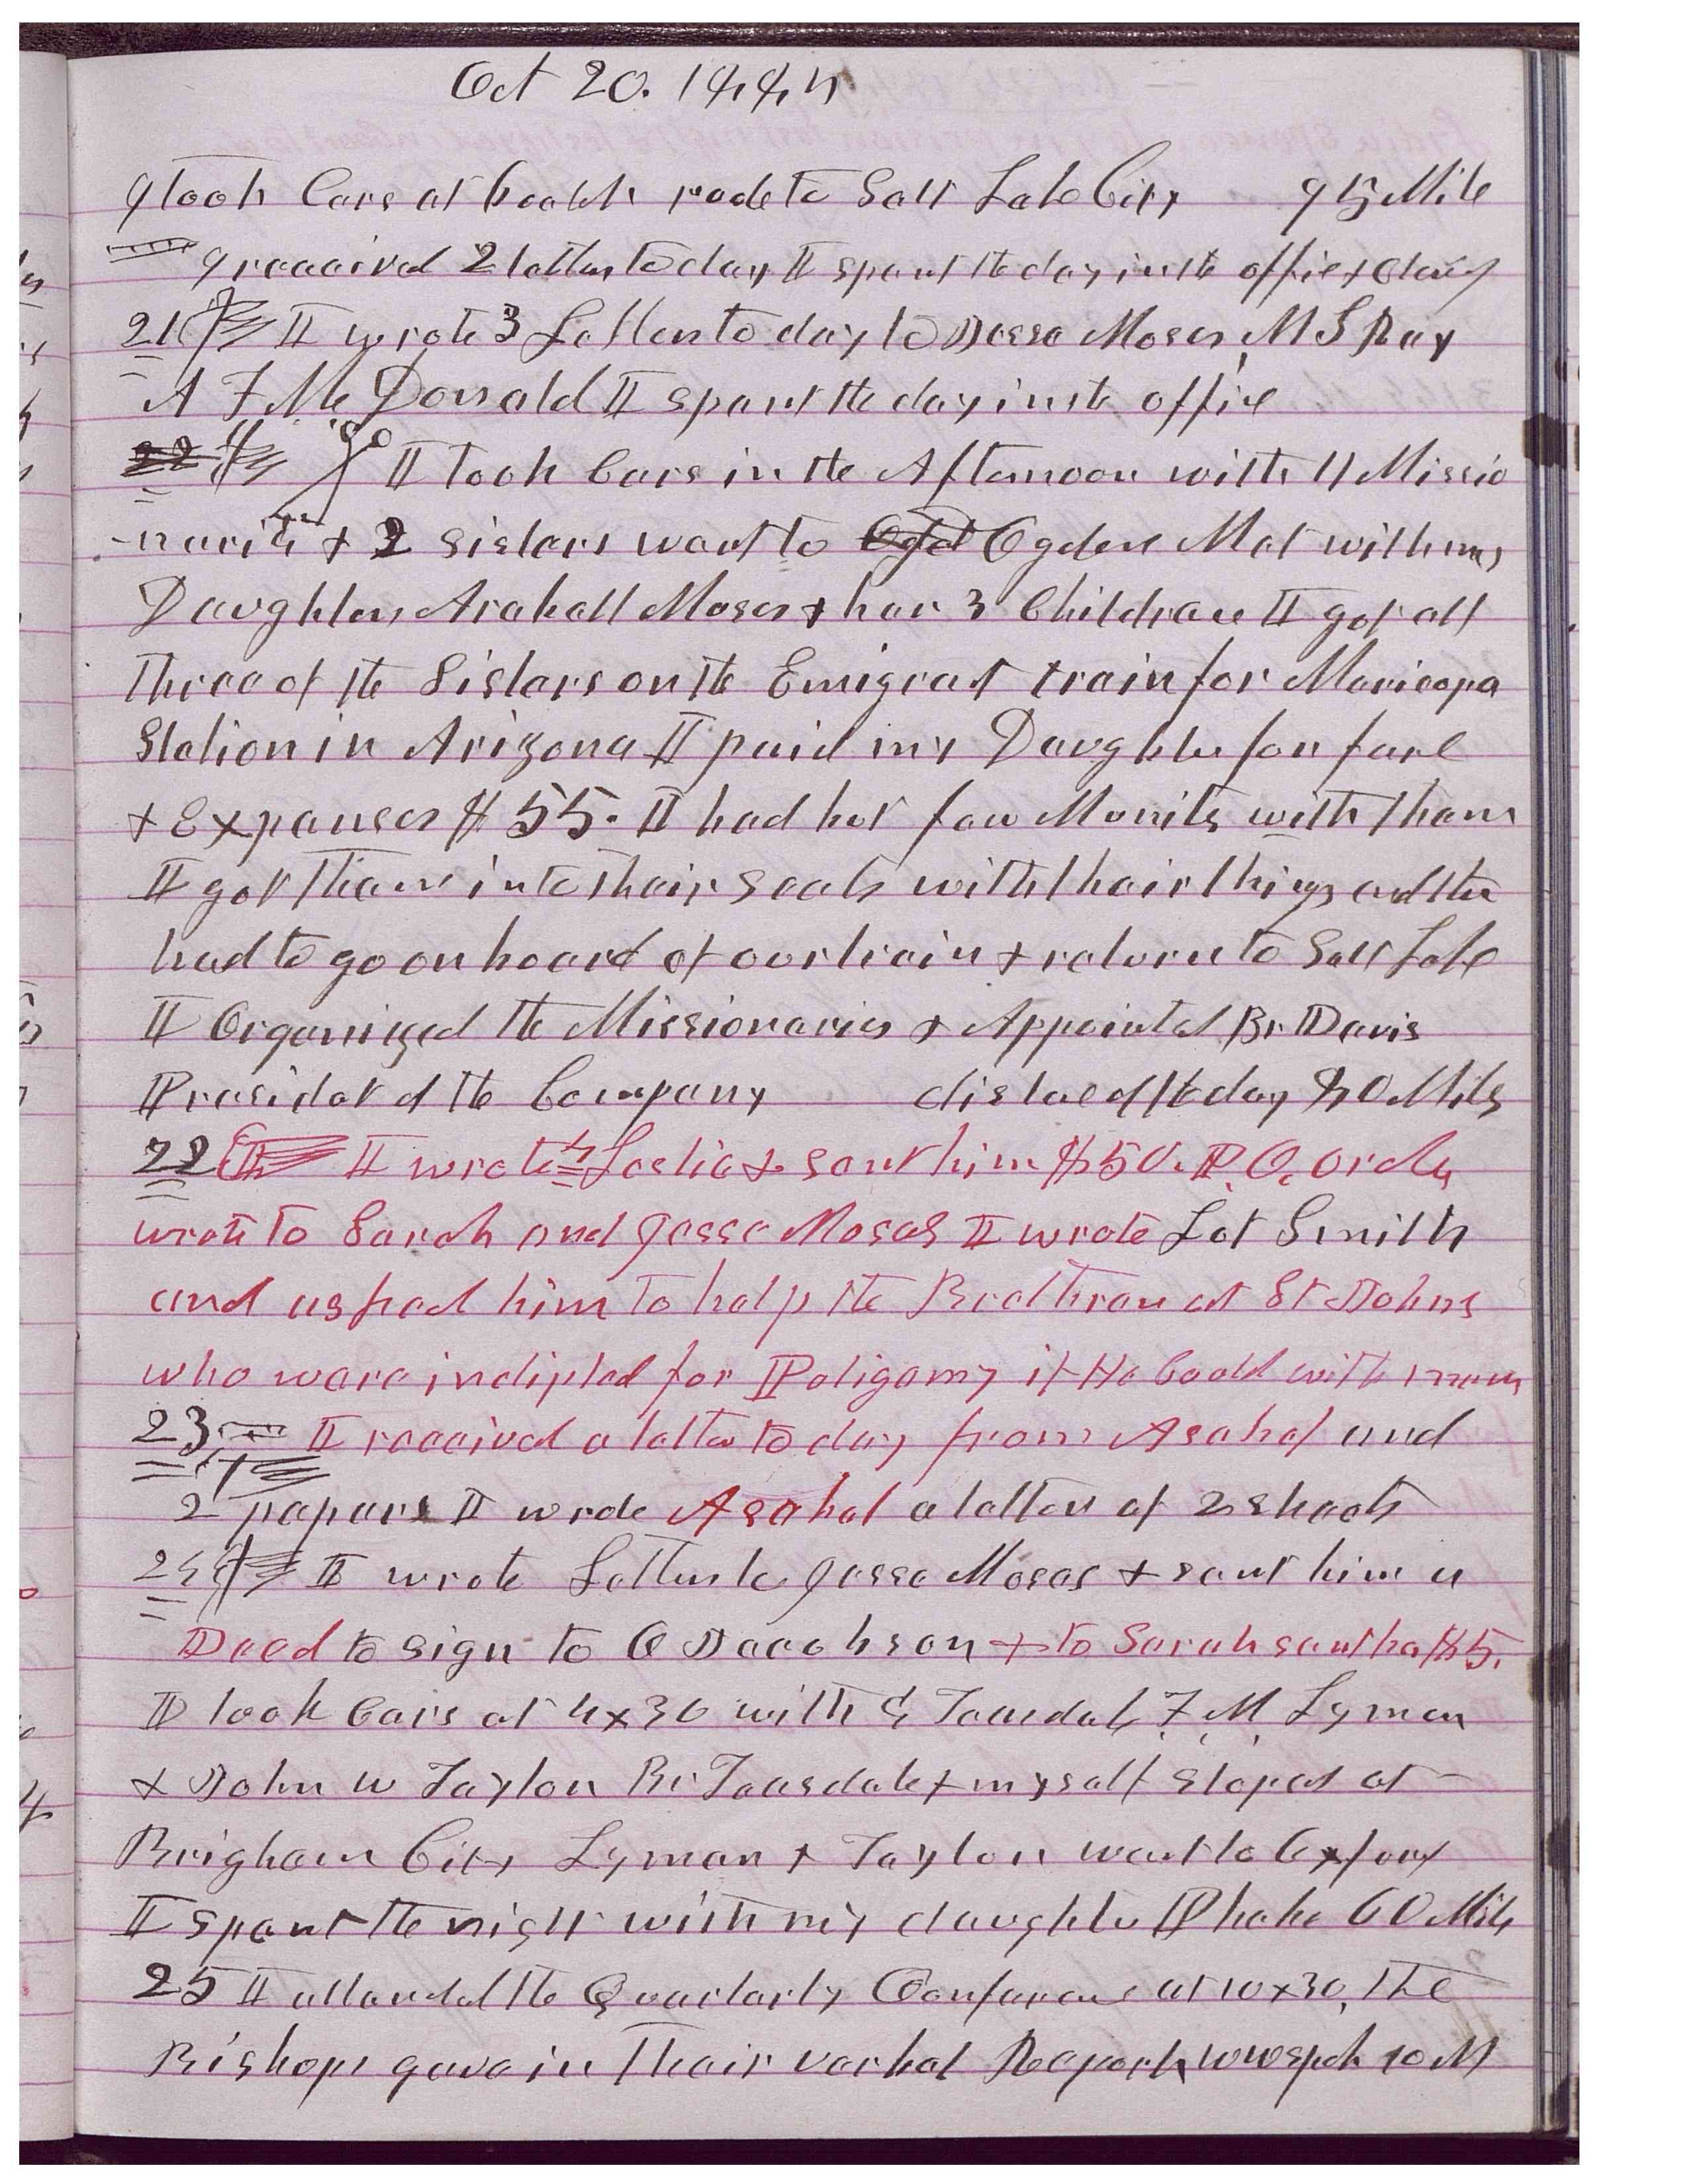 Oct 20. 1884
I took Cars at 6 oclok rode to Salt Lake City 95 Mile
I received 2 letters to day I spent the day in the office
21 I wrote 3 Letters to day to Jesse Moses, M S Ray
A F McDonald I spent the day in the office
22 I took Cars in the Afternoon with 11 Missio
-naries + 2 Sisters went to Ogd Ogden Met with my
Daughter, Arabell Moses + her 3 Children I got all
three of the Sisters on the Emigrat train for Maricopa
Station in Arizona I paid my Daughter for fare
+ Expenses $55. I had but few Munits with them
I got them into their seats with their things and then
had to go on board of our train + return to Salt Lake
I Organized the Missionaries + Appointed Br Davis
Presidet of the Company distace of the day 80 Miles
22 I wrote Leslie + sent him $50. P.O. order
wrote to Sarah and Jesse Moses I wrote Lot Smith
and asked him to help the Brethren at St Johns
who were indipted for Poligamy if He Could with
23 I received a letter to day from Asahel and
2 papers I wrote Asahel a letter of 2 sheets
24 I wrote Letters to Jesse Moses + sent him a
Deed to sign to O Jacobson + to Sarah sent her $5.
I took Cars at 4x30 with G Teasdale, F. M. Lyman
+ John W Taylor Br Teasdale + myself stoped at
Brigham City Lyman + Taylor went to Oxford
I spent the night with my daughter Phebe 60 Mils
25 I attended the Quarterly Conference at 10x30, The
Bishops gave in their verbal Reports W W spok 10 M